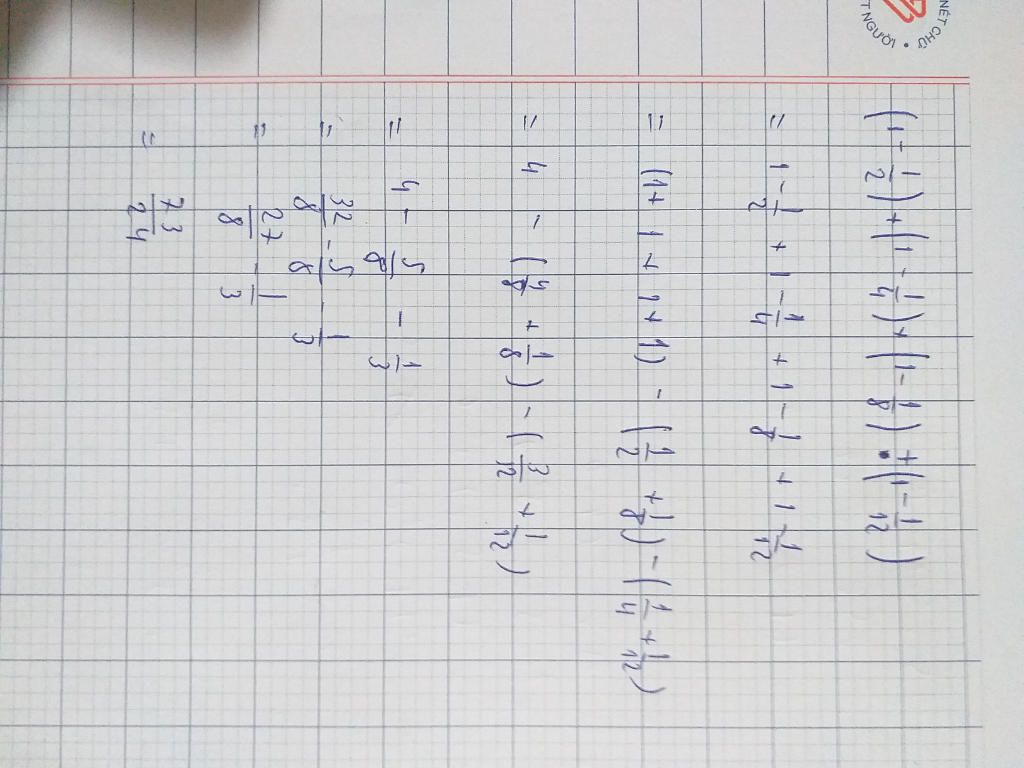 NÉT CHỮ • T NGƯỜI
(1 - 1/2) + (1 - 1/4) + (1 - 1/8) + (1 - 1/12)
= 1 - 1/2 + 1 - 1/4 + 1 - 1/8 + 1 - 1/12
= (1 + 1 + 1 + 1) - (1/2 + 1/8) - (1/4 + 1/12)
= 4 - (4/8 + 1/8) - (3/12 + 1/12)
= 4 - 5/8 - 1/3
= 32/8 - 5/8 - 1/3
= 27/8 - 1/3
= 73/24